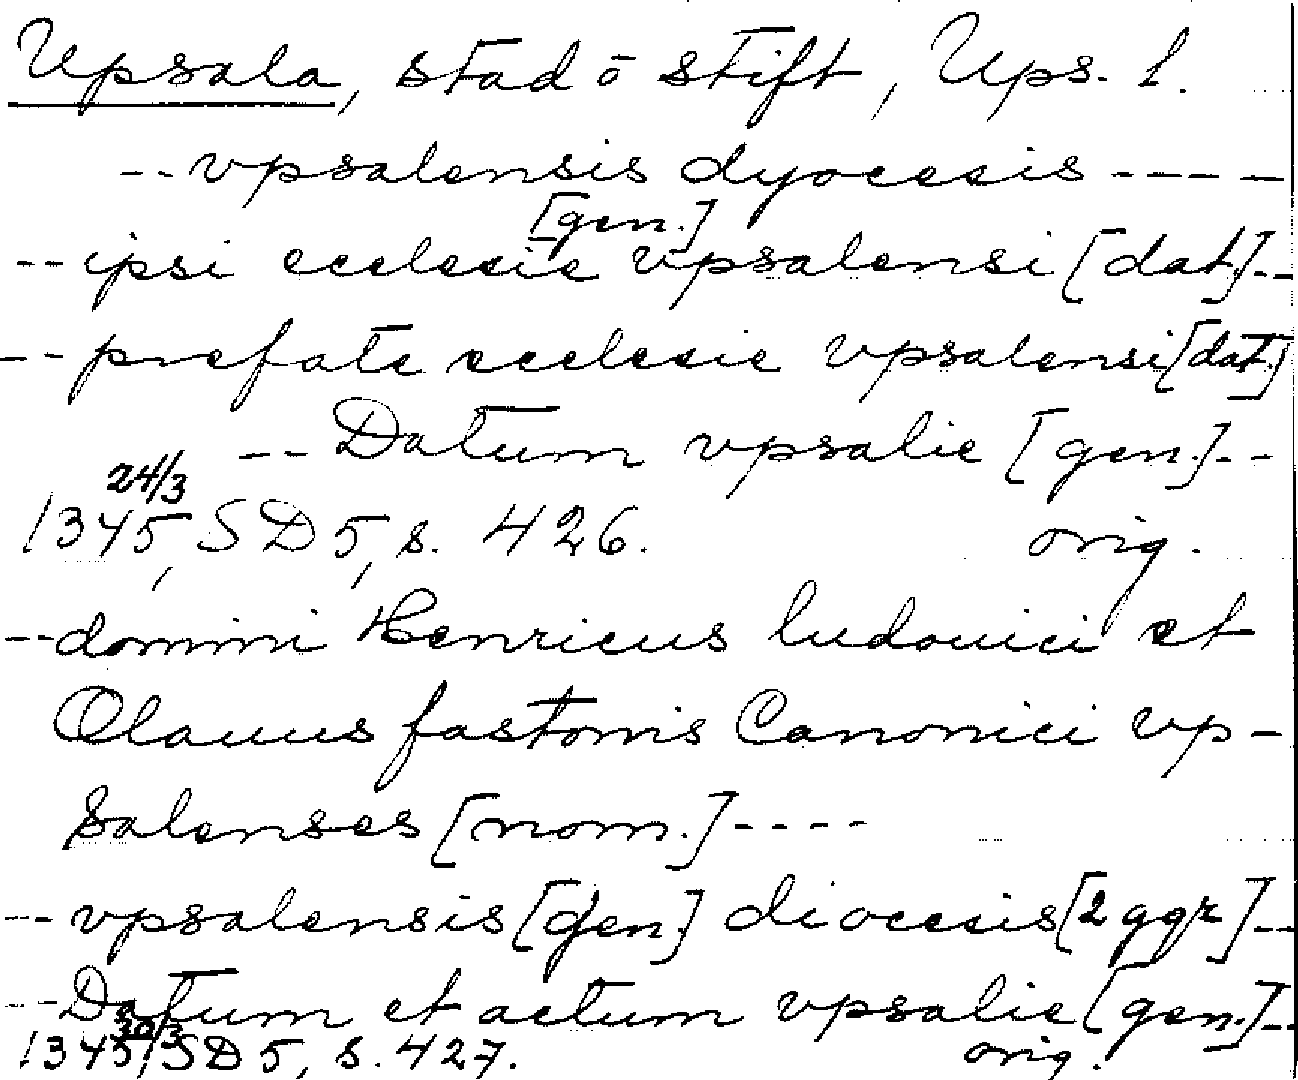 Upsala, stad ō stift, Ups. l.
-- vpsalensis dyocesis ----
[gen.]
-- ipsi ecclesie vpsalensi [dat.] --
-- prefate ecclesie vpsalensi [dat.]
-- Datum vpsalie [gen.] --
24/3
1345, SD 5, s. 426. orig.
-- domini Henricus ludouici et
Olauus fastonis Canonici vp-
salenses [nom.] ----
-- vpsalensis [gen.] diocesis [2 ggr] --
-- Datum et actum vpsalie [gen.] --
30/3
1345, SD 5, s. 427. orig.